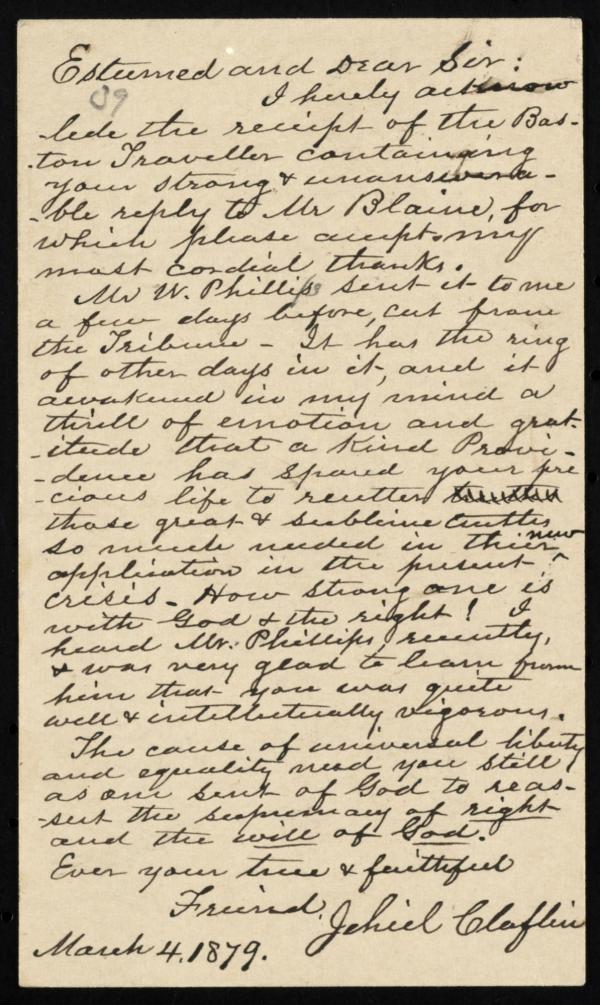 Esteemed and Dear Sir:
39
I herely acknow
-lede the receipt of the Bos-
-ton Traveller containing
your strong & unanswera-
-ble reply to Mr Blaine, for
which please accept my
most cordial thanks.
Mr W. Phillips sent it to me
a few days before, cut from
the Tribune - It has the ring
of other days in it, and it
awakened in my mind a
thrill of emotion and grat-
-itude that a kind Provi-
-dence has spared your pre
-cious life to reutter
those great & sublime truths
so much needed in thier new
application in the present ^
crisis. How strong one is
with God & the right! I
heard Mr. Phillips, recently,
& was very glad to learn from
him that you was quite
well & intellectually vigorous.
The cause of universal liberty
and equality need you still
as one sent of God to reas-
-sert the supremacy of right
and the will of God.
Ever your true & faithful
Friend. Jehiel Claflin
March 4. 1879.